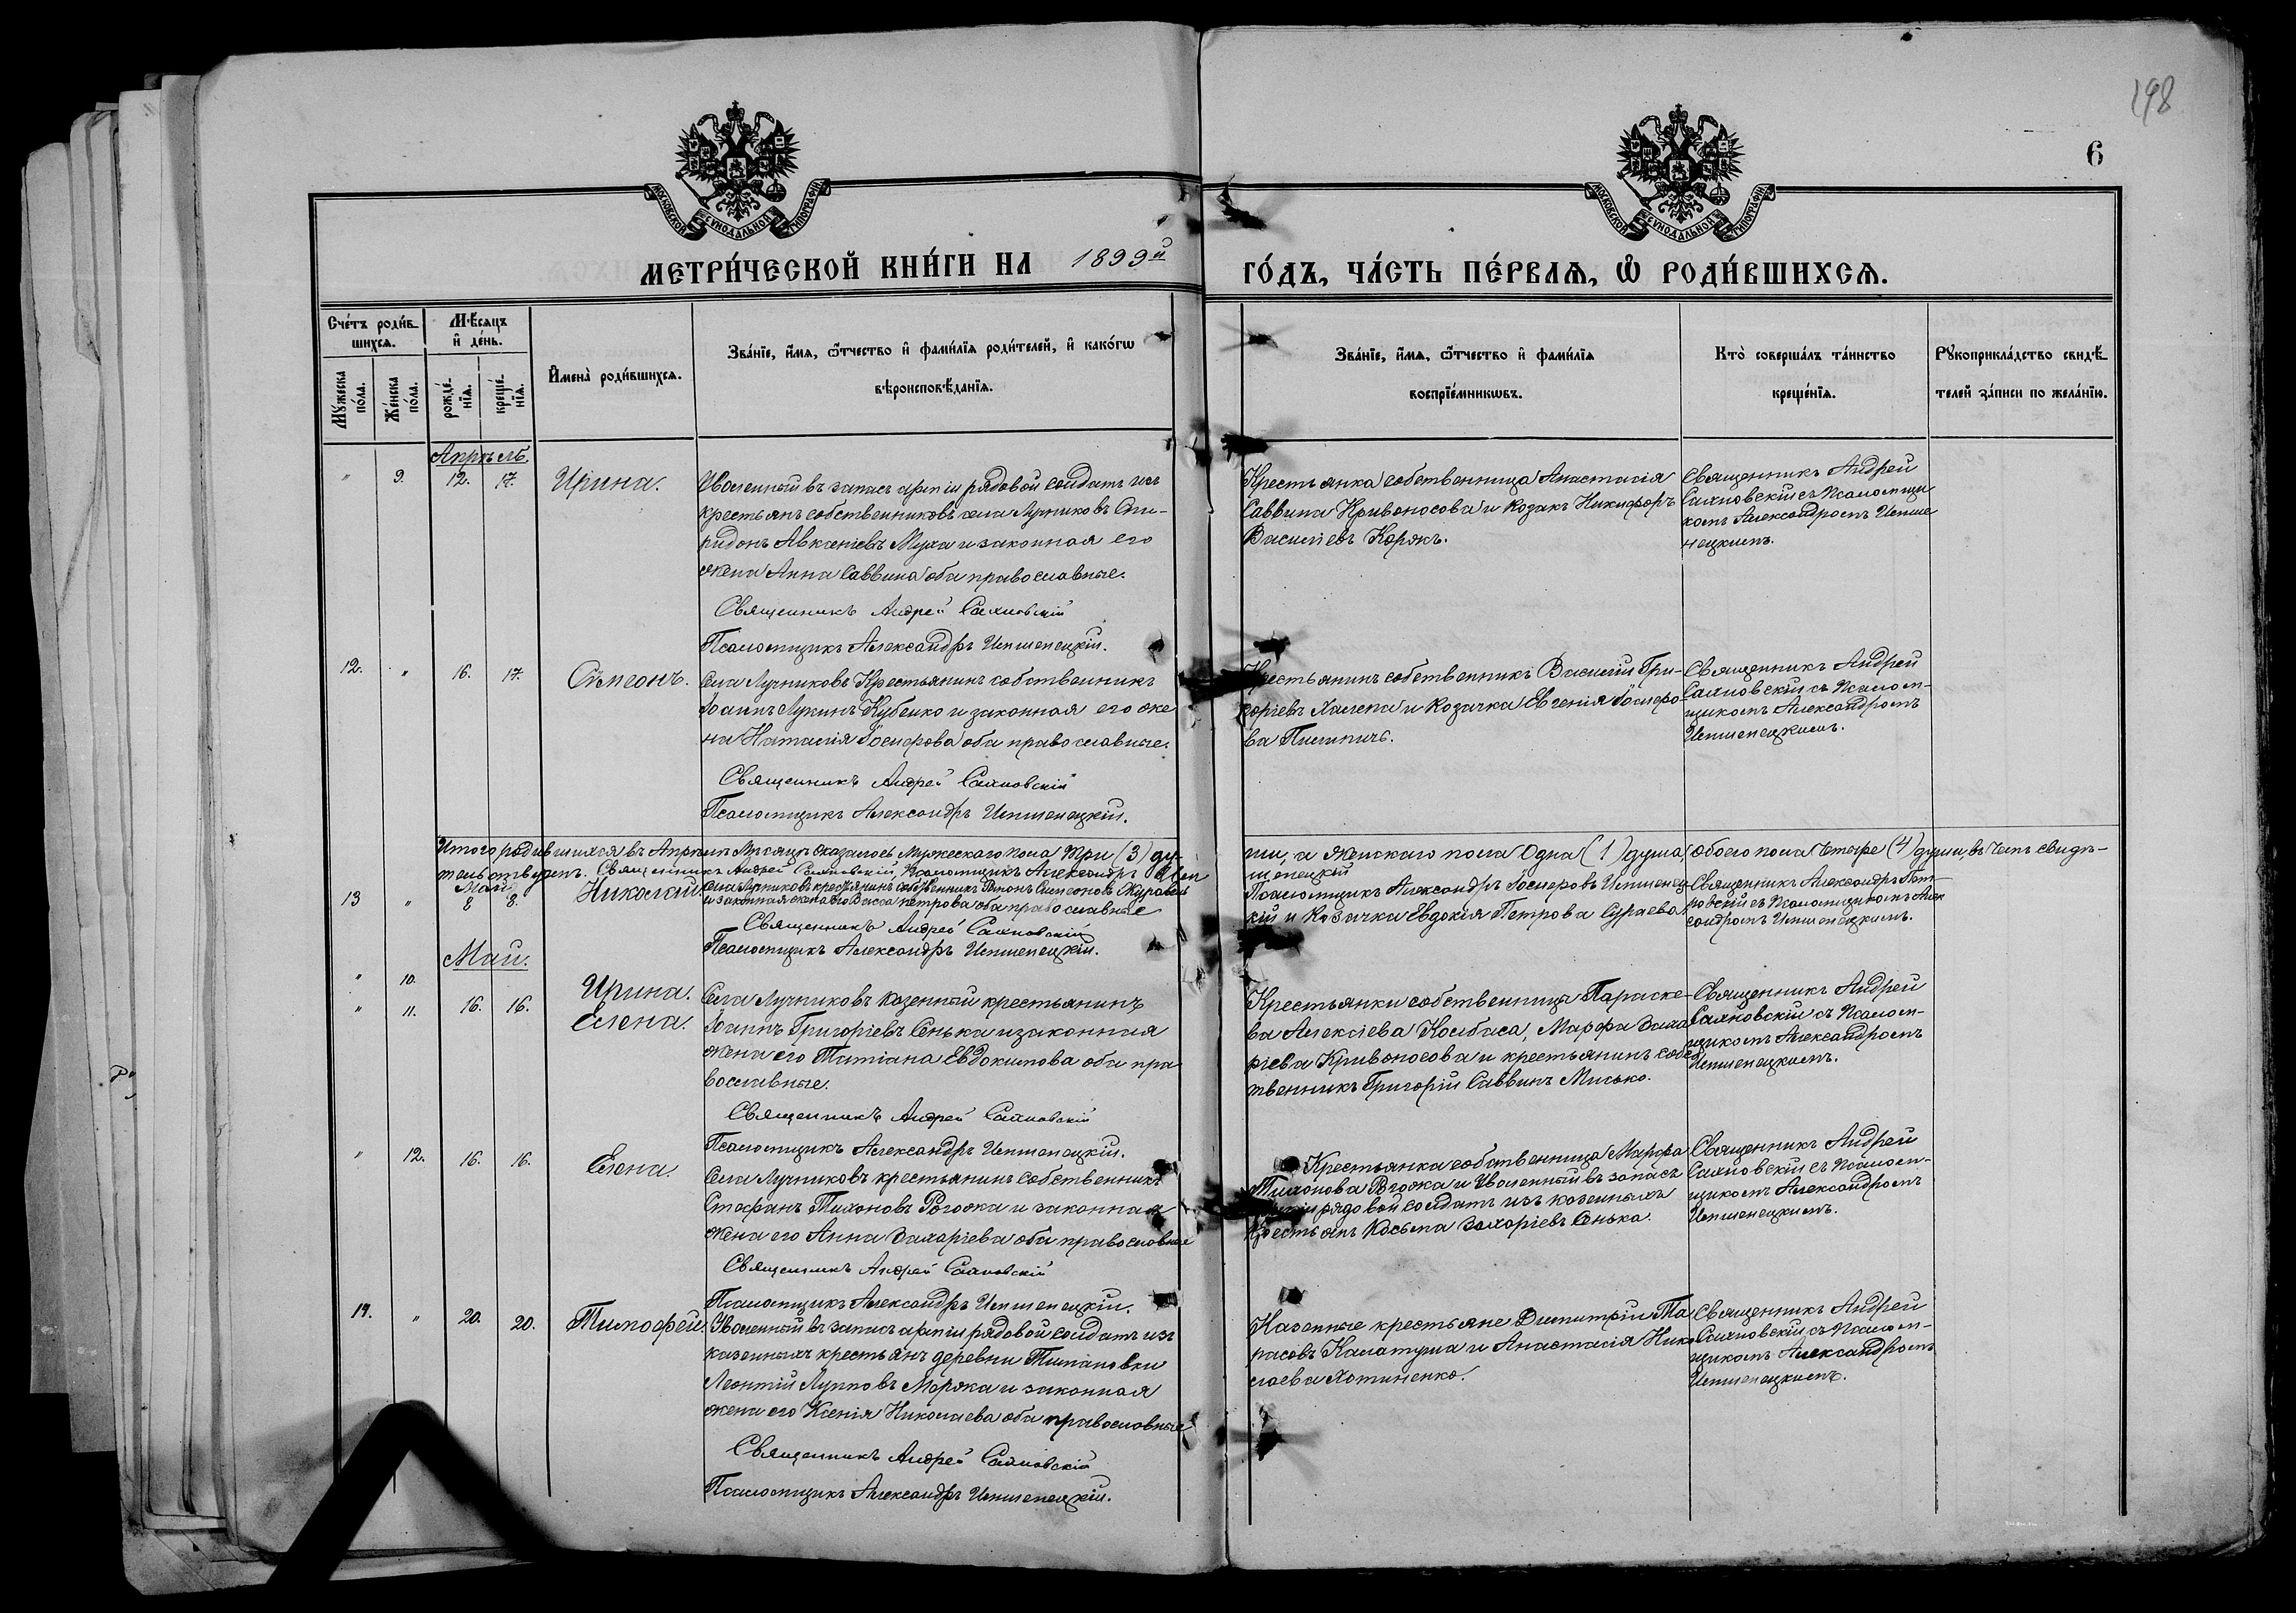 198
6
МОСКОВСКОЙ СѴНОДАЛЬНОЙ ТИПОГРАФІИ
МОСКОВСКОЙ СѴНОДАЛЬНОЙ ТИПОГРАФІИ
МЕТРИ́ЧЕСКОЙ КНИ́ГИ НА 1899й ГО́ДЪ, ЧА́СТЬ ПЕ́РВАѦ, Ѡ РОДИ́ВШИХСѦ.
Сче́тъ роди́в-
шихсѧ.
Мꙋ́жеска по́ла.
Же́нска по́ла.
Мѣ́сѧцъ
и҆ де́нь.
рожде́-
нїѧ.
креще́-
нїѧ.
И҆мена̀ роди́вшихсѧ.
Зва́нїе, и҆́мѧ, ѻ҆́тчество и҆ фами́лїѧ роди́телей, и҆ како́гѡ
вѣроисповѣ́данїѧ.
Зва́нїе, и҆́мѧ, ѻ҆́тчество и҆ фами́лїѧ
воспрїе́мникѡвъ.
Кто̀ соверша́лъ та́инство
креще́нїѧ.
Рꙋкоприкла́дство свидѣ́-
телей за́писи по жела́нїю.
Апрѣль.
" 9. 12. 17. Ирина.
Уволенный въ запасъ арміи рядовой солдатъ изъ
крестьянъ собственниковъ села Лучниковъ Спи-
ридонъ Авксеніевъ Муха и законная его
жена Анна Саввина оба православные.
Священникъ Андрей Сахновскій
Псаломщикъ Александръ
Крестьянка собственница Анастасія
Саввина Кривоносова и козакъ Никифоръ
Василіевъ Корякъ.
Священникъ Андрей
Сахновскій съ Псаломщи
комъ Александромъ
12. " 16. 17. Сѵмеонъ.
Села Лучниковъ Крестьянинъ собственникъ
Іоаннъ Лукинъ Кубенко и законная его же
на Наталія Іосифова оба православные.
Священникъ Андрей Сахновскій
Псаломщикъ Александръ
Крестьянинъ собственникъ Василій Гри-
горіевъ Халепа и Козачка Евгенія Іосифо-
ва
Священникъ Андрей
Сахновскій съ Псалом-
щикомъ Александромъ
Итого родившихся въ Апрѣлѣ Мѣсяцѣ оказалось Мужескаго пола три (3) ду-
ши, а женскаго пола Одна (1) душа, обоего пола четыре (4) души, въ чемъ свидѣ-
тельствуемъ. Священникъ Андрей Сахновскій, Псаломщикъ Александръ
Май
13 " 8 8. Николай
села Лучниковъ крестьянинъ собственникъ Симеоновъ Журавель
и законная жена его Васса Петрова оба православные
Священникъ Андрей Сахновскій
Псаломщикъ Александръ
Псаломщикъ Александръ Іосифовъ
кій и Козачка Евдокія Петрова
Священникъ Александръ
новскій съ Псаломщикомъ Алек
сандромъ
Май.
" 10. Ирина.
" 11. 16. 16. Елена.
Села Лучниковъ Казенный крестьянинъ
Іоаннъ Григоріевъ Сенька и законная
жена его Татіана Евдокимова оба пра
вославные.
Священникъ Андрей Сахновскій
Псаломщикъ Александръ
Крестьянки собственница Параске-
ва Алексіева Колбаса, Марфа Заха
ріева Кривоносова и крестьянинъ собс
твенникъ Григорій Саввинъ Мисько.
Священникъ Андрей
Сахновскій съ Псалом-
щикомъ Александромъ
" 12. 16. 16. Елена.
Села Лучниковъ крестьянинъ собственникъ
Стефанъ Тихоновъ Рогожа и законная
жена его Анна Захаріева оба православные
Священникъ Андрей Сахновскій
Псаломщикъ Александръ
Крестьянка собственница Марфа
Тихонова Рогожа и Уволенный въ запасъ
арміи рядовой солдатъ изъ казенныхъ
крестьянъ Косьма Захаріевъ Сенька.
Священникъ Андрей
Сахновскій съ Псалом-
щикомъ Александромъ
14. " 20. 20. Тимофей.
Уволенный въ запасъ арміи рядовой солдатъ изъ
казенныхъ крестьянъ деревни Тимановки
Леонтій Лупповъ Моржа и законная
жена его Ксенія Николаева оба православные
Священникъ Андрей Сахновскій
Псаломщикъ Александръ
Казенные крестьяне Димитрій Та
расовъ Калатуша и Анастасія Нико
лаева Хотиненко.
Священникъ Андрей
Сахновскій съ Псалом-
щикомъ Александромъ